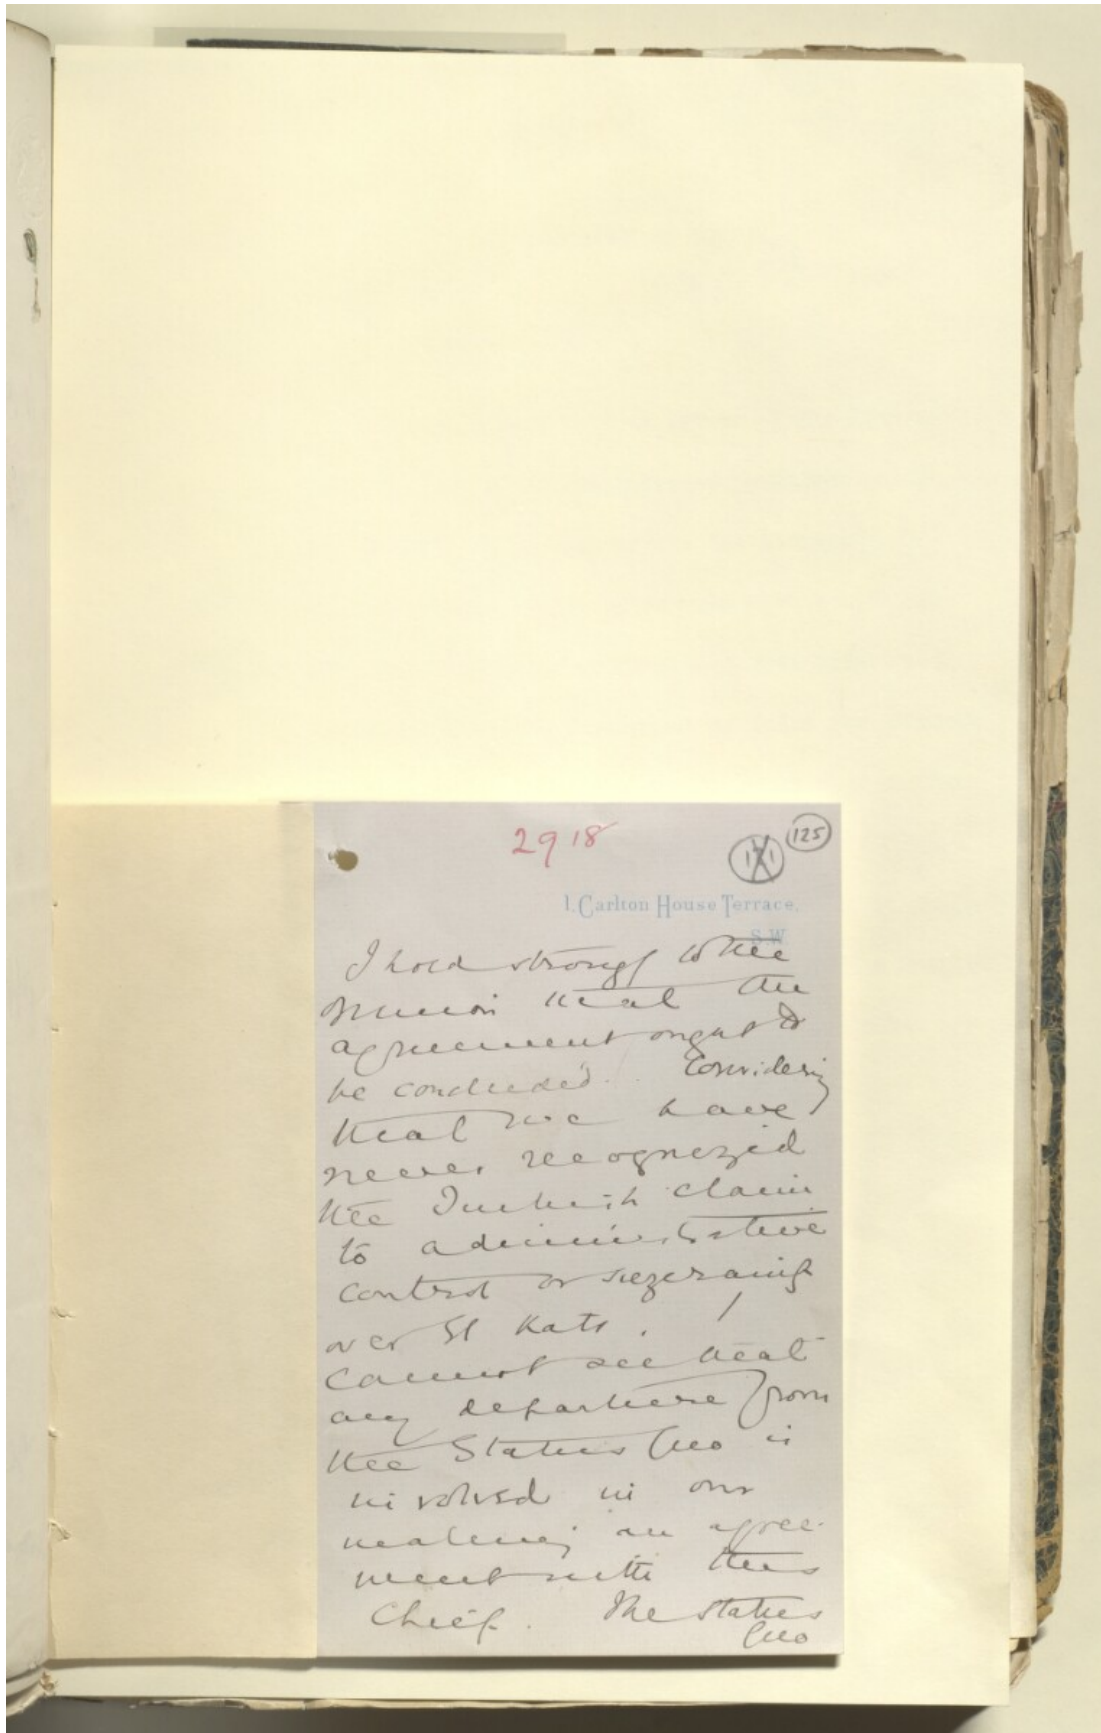 2918
171
125
1. Carlton House Terrace,
S.W.
I hold strongly to the
opinion that the
agreement ought to
be concluded. Considering
that we have
never recognized
the Turkish claim
to administrative
control or suzerainty
over El Katr. I
cannot see that
any departure from
the Status Quo is
involved in our
making an agree-
ment with this
Chief. The status
Quo